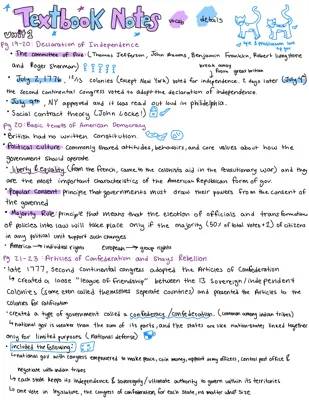 Textbook Notes
vocab
details
unit 1
pg 19-20: Declaration of Independence
• The committee of five (Thomas Jefferson, John Adams, Benjamin Franklin, Robert Livingstone
and Roger Sherman)
break away
from great britain
• July 2, 1776, 12/13 colonies (except New York) voted for independence. 2 days later (July 4th)
the second continental congress voted to adopt the declaration of independence.
• July 9th, NY approved and it was read out loud in philadelphia.
• Social contract theory (John Locke!)
pg 20: Basic tenets of American Democracy
• British had no written constitution
• Political culture: Commonly shared attitudes, behaviors, and core values about how the
government should operate
• liberty & equality (from the French, came to the colonists aid in the revolutionary war) and they
are the most important characteristics of the American Republican form of gov.
• Popular consent: principle that governments must draw their powers from the consent of
the governed
• Majority Rule: principle that means that the election of officials and transformation
of policies into law will take place only if the majority (50% of total votes +1) of citizens
in any political unit support such changes
• America → individual rights European → group rights
pg 21-23: Articles of Confederation and Shays Rebellion
• late 1777, second continental congress adopted the Articles of Confederation
↳ created a loose "league of friendship" between the 13 sovereign/independent
colonies (some even called themselves separate countries) and presented the Articles to the
colonies for ratification
• created a type of government called a confederacy/confederation. (common among indian tribes)
↳ national gov is weaker than the sum of its parts, and the states are like nation-states linked together
only for limited purposes (national defense)
• included the following:
↳ national gov with congress empowered to make peace, coin money, appoint army officers, control post office &
negotiate with indian tribes
↳ each state keeps its independence & sovereignty/ultimate authority to govern within its territories
↳ one vote in legislature, the congress of confederation, for each state, no matter what size